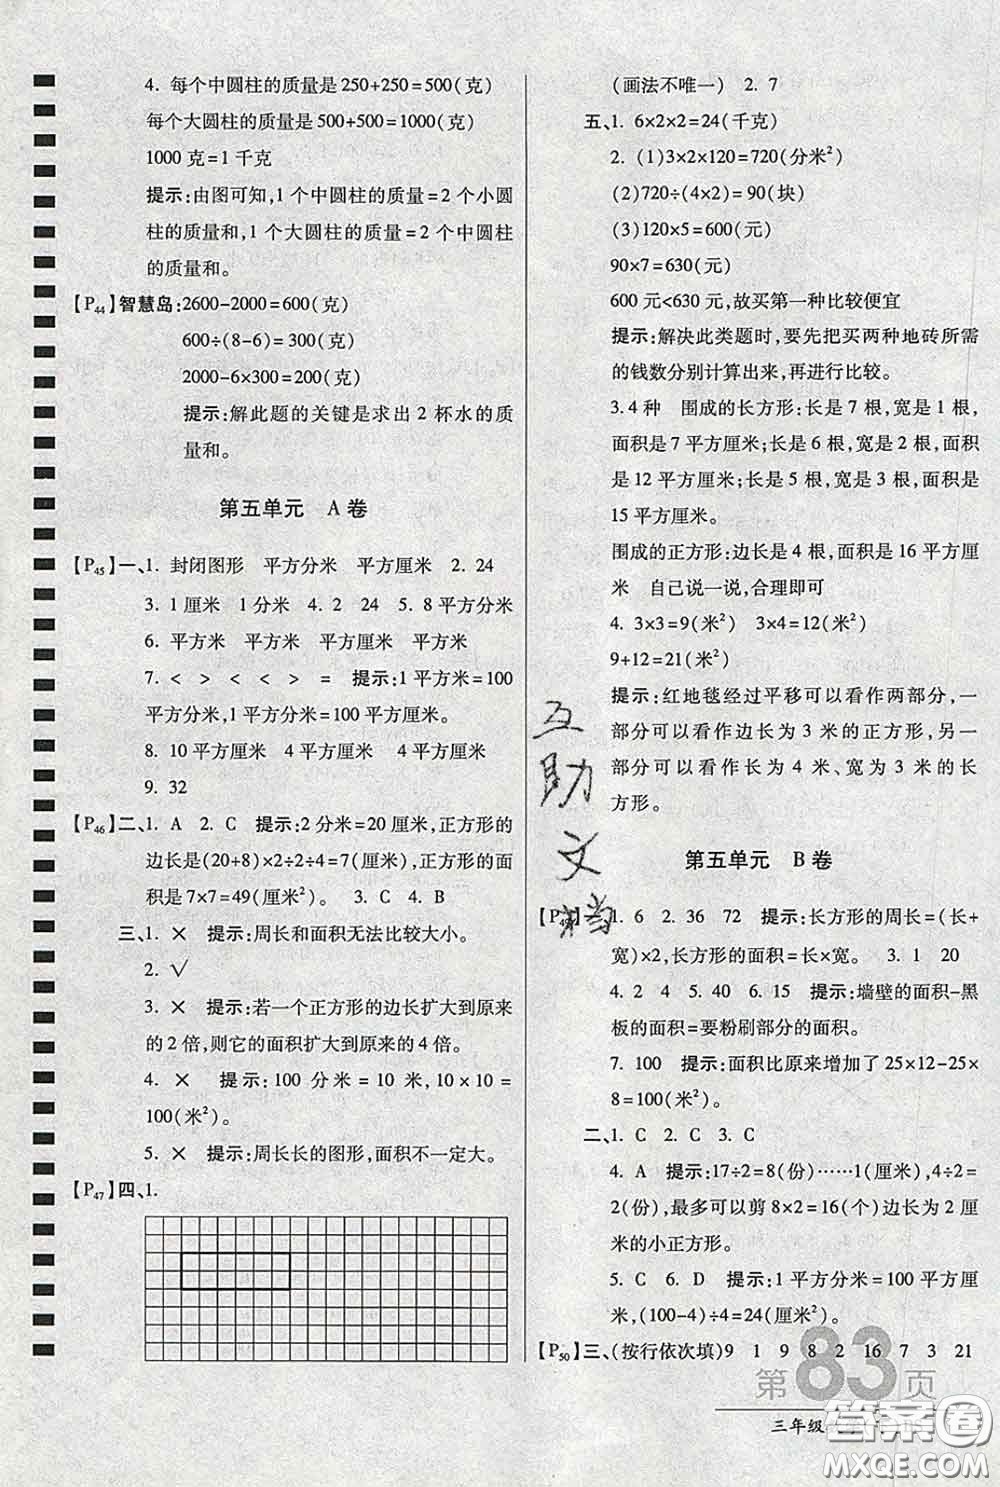 4. 每个中圆柱的质量是250+250=500(克)
每个大圆柱的质量是500+500=1000(克)
1000克=1千克
提示:由图可知,1个中圆柱的质量=2个小圆
柱的质量和,1个大圆柱的质量=2个中圆柱
的质量和。
【P44】智慧岛:2600-2000=600(克)
600÷(8-6)=300(克)
2000-6×300=200(克)
提示:解此题的关键是求出2杯水的质
量和。
第五单元 A卷
【P45】一、1. 封闭图形 平方分米 平方厘米 2. 24
3. 1厘米 1分米 4. 2 24 5. 8平方分米
6. 平方米 平方米 平方厘米 平方米
7. < > < < > = 提示:1平方米=100
平方分米,1平方分米=100平方厘米。
8. 10平方厘米 4平方厘米 4平方厘米
9. 32
【P46】二、1. A 2. C 提示:2分米=20厘米,正方形的
边长是(20+8)×2÷2÷4=7(厘米),正方形的面
积是7×7=49(厘米²) 3. C 4. B
三、1. × 提示:周长和面积无法比较大小。
2. √
3. × 提示:若一个正方形的边长扩大到原来
的2倍,则它的面积扩大到原来的4倍。
4. × 提示:100分米=10米,10×10=
100(米²)。
5. × 提示:周长长的图形,面积不一定大。
【P47】四、1.
(画法不唯一) 2. 7
五、1. 6×2×2=24(千克)
2. (1)3×2×120=720(分米²)
(2)720÷(4×2)=90(块)
(3)120×5=600(元)
90×7=630(元)
600元<630元,故买第一种比较便宜
提示:解决此类题时,要先把买两种地砖所需
的钱数分别计算出来,再进行比较。
3.4种 围成的长方形:长是7根,宽是1根,
面积是7平方厘米;长是6根,宽是2根,面积
是12平方厘米;长是5根,宽是3根,面积是
15平方厘米。
围成的正方形:边长是4根,面积是16平方厘
米 自己说一说,合理即可
4. 3×3=9(米²) 3×4=12(米²)
9+12=21(米²)
提示:红地毯经过平移可以看作两部分,一
部分可以看作边长为3米的正方形,另一
部分可以看作长为4米、宽为3米的长
方形。
互助文档
第五单元 B卷
一、1. 6 2. 36 72 提示:长方形的周长=(长+
宽)×2,长方形的面积=长×宽。 3. 1 20
4. 2 4 5. 40 6. 15 提示:墙壁的面积-黑
板的面积=要粉刷部分的面积。
7. 100 提示:面积比原来增加了25×12-25×
8=100(米²)。
二、1. C 2. C 3. C
4. A 提示:17÷2=8(份)……1(厘米),4÷2=
2(份),最多可以剪8×2=16(个)边长为2厘
米的小正方形。
5. C 6. D 提示:1平方分米=100平方厘
米,(100-4)÷4=24(厘米²)。
【P50】三、(按行依次填)9 1 9 8 2 16 7 3 21
第83页
三年级
答案圈
MXQE.COM